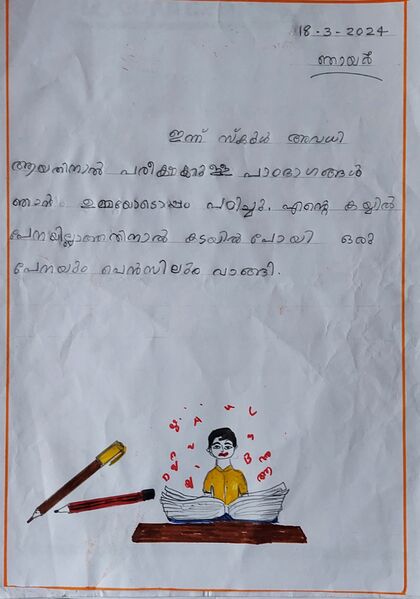 18-3-2024
ഞായർ
ഇന്ന് സ്കൂൾ അവധി
ആയതിനാൽ പരീക്ഷക്കുള്ള പാഠഭാഗങ്ങൾ
ഞാൻ ഉമ്മയോടൊപ്പം പഠിച്ചു. എൻ്റെ കയ്യിൽ
പേനയില്ലാത്തതിനാൽ കടയിൽ പോയി ഒരു
പേനയും പെൻസിലും വാങ്ങി.